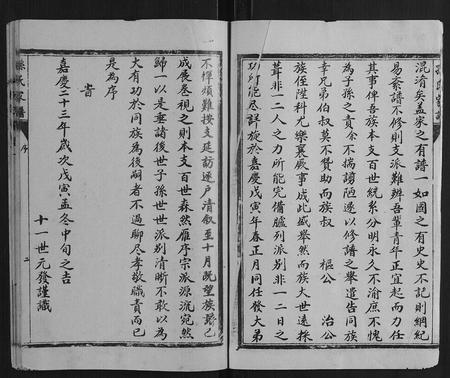 混淆矣盖家之有譜一如國之有史史不記則綱紀
易紊譜不修則支派難辨吾輩青年正宜起而力任
其事俾吾族本支百世統系分明永久不渝庶不愧
為子孫之責余不揣謭陋遂以修譜之舉遣告同族
幸兄弟伯叔莫不贊助而族叔 樞公 治公
族侄陞科尤樂襄厥事成此盛舉然而族大世遠採
葺非一二人之力所能完備臚列派別非一二日之
功所能尽詳旋於嘉慶戊寅年春正月同任發大弟
不憚煩難按支延訪逐戶清叙至十月既望族譜已
成展卷視之則本支百世森然雁序宗派源流宛然
歸一以是垂諸後世子孫世世派別清晰不敢以為
大有功於同族為後嗣者不過聊尽孝敬職責而已
是為序
旹
嘉慶二十三年歲次戊寅孟冬中旬之吉
十一世元發謹識
孫氏家譜
序
二